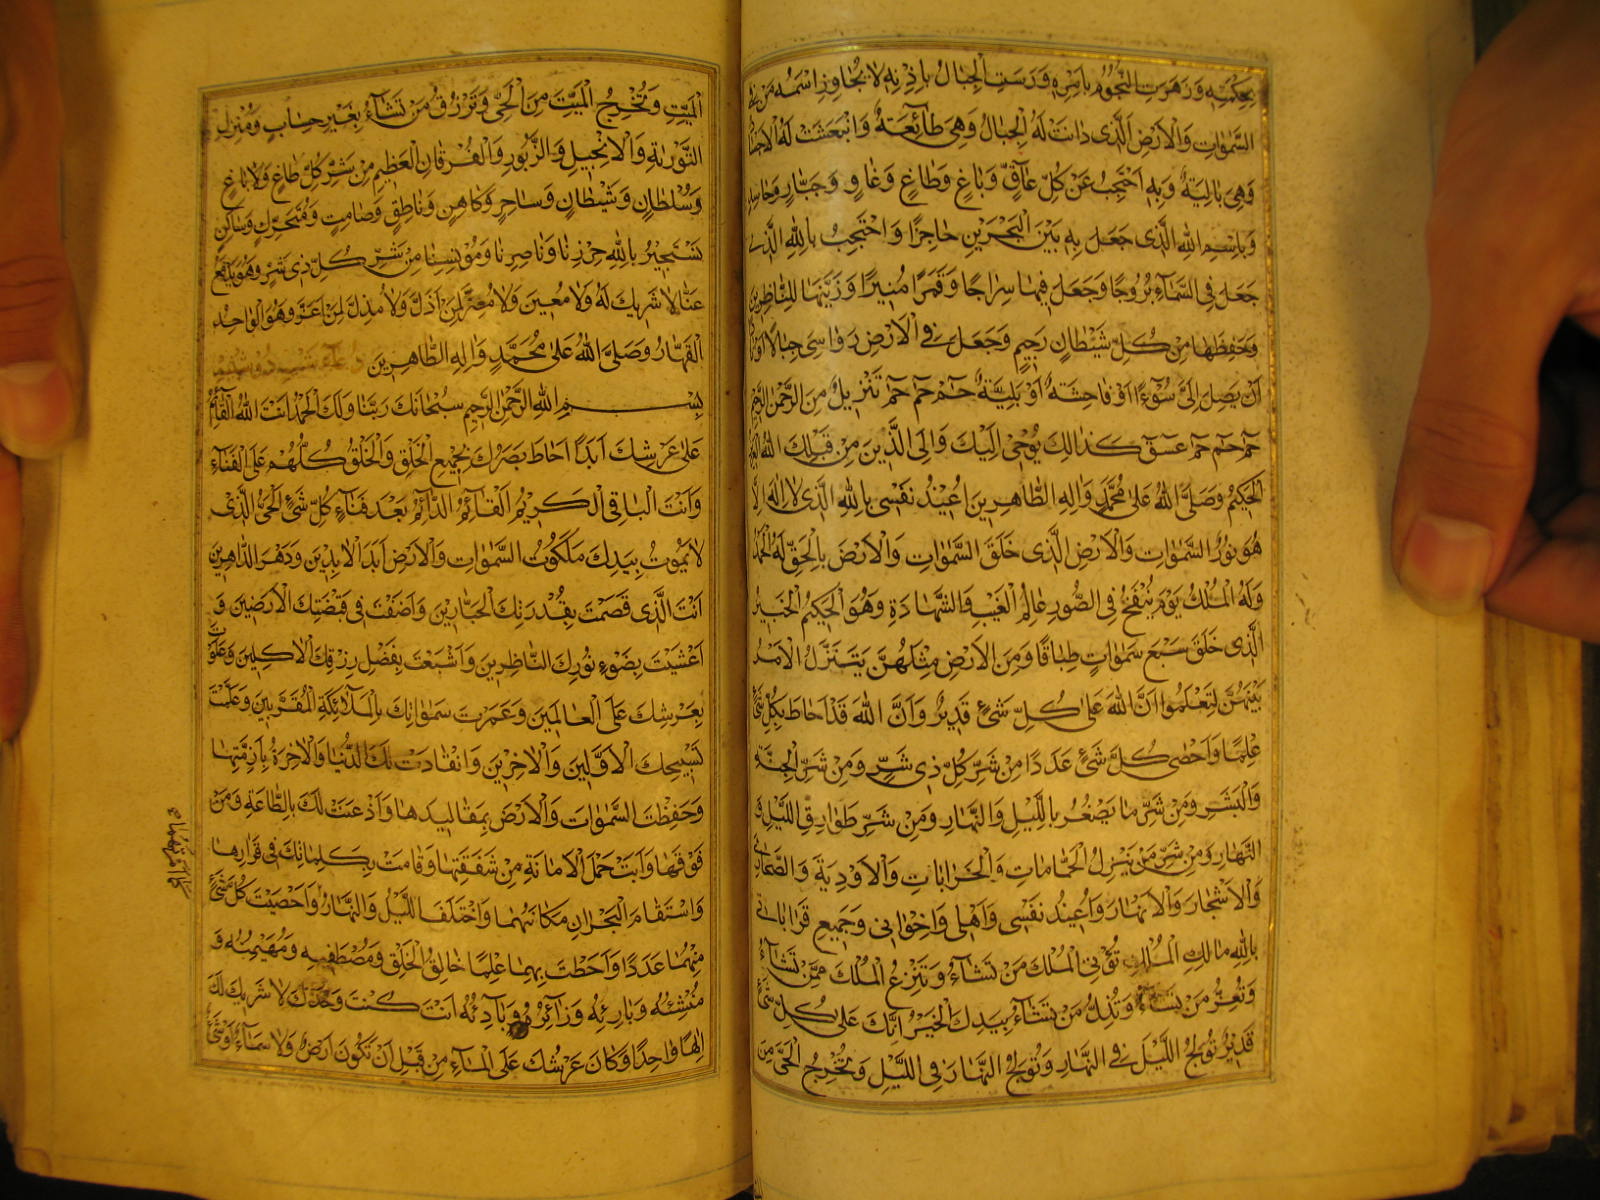 بِحِكْمَتِهِ وَزَهَرَتِ النُّجُومُ بِاَمْرِهِ وَرَسَتِ الْجِبَالُ بِاِذْنِهِ لَا يُجَاوِزُ اسْمُهُ مَنْ فِي
السَّمٰوَاتِ وَالْاَرْضِ الَّذِي دَانَتْ لَهُ الْجِبَالُ وَهِيَ طَائِعَةٌ وَانْبَعَثَتْ لَهُ الْاَجْسَادُ
وَهِيَ بَالِيَةٌ وَبِهِ اَحْتَجِبُ عَنْ كُلِّ عَاقٍّ وَبَاغٍ وَطَاغٍ وَغَاوٍ وَجَبَّارٍ وَحَاسِدٍ
وَبِاسْمِ اللهِ الَّذِي جَعَلَ بِهِ بَيْنَ الْبَحْرَيْنِ حَاجِزًا وَاحْتَجِبُ بِاللهِ الَّذِي
جَعَلَ فِي السَّمَاءِ بُرُوجًا وَجَعَلَ فِيهَا سِرَاجًا وَقَمَرًا مُنِيرًا وَزَيَّنَهَا لِلنَّاظِرِينَ
وَحَفِظَهَا مِنْ كُلِّ شَيْطَانٍ رَجِيمٍ وَجَعَلَ فِي الْاَرْضِ رَوَاسِيَ جِبَالًا اَوْتَادًا
اَنْ يَصِلَ اِلَيَّ سُوءٌ اَوْ فَاحِشَةٌ اَوْ بَلِيَّةٌ حٰمٓ حٰمٓ حٰمٓ تَنْزِيلٌ مِنَ الرَّحْمٰنِ الرَّحِيمِ
حٰمٓ حٰمٓ حٰمٓ عٓسٓقٓ كَذَالِكَ يُوحِي اِلَيْكَ وَاِلَى الَّذِينَ مِنْ قَبْلِكَ اللهُ الْعَزِيزُ
الْحَكِيمُ وَصَلَّى اللهُ عَلَى مُحَمَّدٍ وَاٰلِهِ الطَّاهِرِينَ اُعِيذُ نَفْسِي بِاللهِ الَّذِي لَا اِلٰهَ اِلَّا
هُوَ نُورُ السَّمٰوَاتِ وَالْاَرْضِ الَّذِي خَلَقَ السَّمٰوَاتِ وَالْاَرْضَ بِالْحَقِّ لَهُ الْحَمْدُ
وَلَهُ الْمُلْكُ يَوْمَ يُنْفَخُ فِي الصُّورِ عَالِمُ الْغَيْبِ وَالشَّهَادَةِ وَهُوَ الْحَكِيمُ الْخَبِيرُ
الَّذِي خَلَقَ سَبْعَ سَمٰوَاتٍ طِبَاقًا وَمِنَ الْاَرْضِ مِثْلَهُنَّ يَتَنَزَّلُ الْاَمْرُ
بَيْنَهُنَّ لِتَعْلَمُوا اَنَّ اللهَ عَلَى كُلِّ شَيْءٍ قَدِيرٌ وَاَنَّ اللهَ قَدْ اَحَاطَ بِكُلِّ شَيْءٍ
عِلْمًا وَاَحْصٰى كُلَّ شَيْءٍ عَدَدًا مِنْ شَرِّ كُلِّ ذِي شَرٍّ وَمِنْ شَرِّ الْجِنَّةِ
وَالْبَشَرِ وَمِنْ شَرِّ مَا يَصْغُرُ بِاللَّيْلِ وَالنَّهَارِ وَمِنْ شَرِّ طَوَارِقِ اللَّيْلِ وَ
النَّهَارِ وَمِنْ شَرِّ مَنْ يَنْزِلُ الْحَمَّامَاتِ وَالْخَرَابَاتِ وَالْاَوْدِيَةَ وَالصَّحَارِيَ
وَالْاَشْجَارَ وَالْاَنْهَارَ وَاُعِيذُ نَفْسِي وَاَهْلِي وَاِخْوَانِي وَجَمِيعَ قَرَابَاتِي
بِاللهِ مَالِكِ الْمُلْكِ تُؤْتِي الْمُلْكَ مَنْ تَشَاءُ وَتَنْزِعُ الْمُلْكَ مِمَّنْ تَشَاءُ
وَتُعِزُّ مَنْ تَشَاءُ وَتُذِلُّ مَنْ تَشَاءُ بِيَدِكَ الْخَيْرُ اِنَّكَ عَلَى كُلِّ شَيْءٍ
قَدِيرٌ تُولِجُ اللَّيْلَ فِي النَّهَارِ وَتُولِجُ النَّهَارَ فِي اللَّيْلِ وَتُخْرِجُ الْحَيَّ مِنَ
الْمَيِّتِ وَتُخْرِجُ الْمَيِّتَ مِنَ الْحَيِّ وَتَرْزُقُ مَنْ تَشَاءُ بِغَيْرِ حِسَابٍ وَمُنْزِلِ
التَّوْرٰيةِ وَالْاِنْجِيلِ وَالزَّبُورِ وَالْفُرْقَانِ الْعَظِيمِ مِنْ شَرِّ كُلِّ طَاغٍ وَبَاغٍ
وَسُلْطَانٍ وَشَيْطَانٍ وَسَاحِرٍ وَكَاهِنٍ وَنَاطِقٍ وَصَامِتٍ وَمُتَحَرِّكٍ وَسَاكِنٍ
نَسْتَجِيرُ بِاللهِ حِرْزِنَا وَنَاصِرِنَا وَمُونِسِنَا مِنْ شَرِّ كُلِّ ذِي شَرٍّ وَهُوَ يَدْفَعُ
عَنَّا لَا شَرِيكَ لَهُ وَلَا مُعِينَ وَلَا مُعِزَّ لِمَنْ اَذَلَّ وَلَا مُذِلَّ لِمَنْ اَعَزَّ وَهُوَ الْوَاحِدُ
الْقَهَّارُ وَصَلَّى اللهُ عَلَى مُحَمَّدٍ وَاٰلِهِ الطَّاهِرِينَ دُعَاءِ شب دوشنبه
بِسْمِ اللهِ الرَّحْمٰنِ الرَّحِيمِ سُبْحَانَكَ رَبَّنَا وَلَكَ الْحَمْدُ اَنْتَ اللهُ الْقَائِمُ
عَلَى عَرْشِكَ اَبَدًا اَحَاطَ بَصَرُكَ بِجَمِيعِ الْخَلْقِ وَالْخَلْقُ كُلُّهُمْ عَلَى الْفَنَاءِ
وَاَنْتَ الْبَاقِي الْكَرِيمُ الْقَائِمُ الدَّائِمُ بَعْدَ فَنَاءِ كُلِّ شَيْءٍ الْحَيُّ الَّذِي
لَا يَمُوتُ بِيَدِكَ مَلَكُوتُ السَّمٰوَاتِ وَالْاَرْضِ اَبَدَ الْاٰبِدِينَ وَدَهْرَ الدَّاهِرِينَ
اَنْتَ الَّذِي قَصَمْتَ بِقُدْرَتِكَ الْجَبَّارِينَ وَاَضَفْتَ فِي قَبْضَتِكَ الْاَرَضِينَ وَ
اَغْشَيْتَ بِضَوْءِ نُورِكَ النَّاظِرِينَ وَاَشْبَعْتَ بِفَضْلِ رِزْقِكَ الْاٰكِلِينَ وَعَلَوْتَ
بِعَرْشِكَ عَلَى الْعَالَمِينَ وَعَمَرْتَ سَمٰوَاتِكَ بِالْمَلَائِكَةِ الْمُقَرَّبِينَ وَعَلَّمْتَ
تَسْبِيحَكَ الْاَوَّلِينَ وَالْاٰخِرِينَ وَانْقَادَتْ لَكَ الدُّنْيَا وَالْاٰخِرَةُ بِاَزِمَّتِهَا
وَحَفِظْتَ السَّمٰوَاتِ وَالْاَرْضَ بِمَقَالِيدِهَا وَاَذْعَنَتْ لَكَ بِالطَّاعَةِ وَمَنْ
فَوْقَهَا وَاَبَتْ حَمْلَ الْاَمَانَةِ مِنْ شَفَقَتِهَا وَقَامَتْ بِكَلِمَاتِكَ فِي قَرَارِهَا
وَاسْتَقَامَ الْبَحْرَانِ مَكَانَهُمَا وَاخْتَلَفَ اللَّيْلُ وَالنَّهَارُ وَاَحْصَيْتَ كُلَّ شَيْءٍ
مِنْهُمَا عَدَدًا وَاَحَطْتَ بِهِمَا عِلْمًا خَالِقُ الْخَلْقِ وَمُصْطَفِيهِ وَمُهَيْمِنُهُ وَ
مُنْشِئُهُ وَبَارِئُهُ وَذَارِئُهُ وَبَادِئُهُ اَنْتَ كُنْتَ وَحْدَكَ لَا شَرِيكَ لَكَ
اِلٰهًا وَاحِدًا وَكَانَ عَرْشُكَ عَلَى الْمَاءِ مِنْ قَبْلِ اَنْ تَكُونَ اَرْضٌ وَلَا سَمَاءٌ اَوْ شَيْءٌ